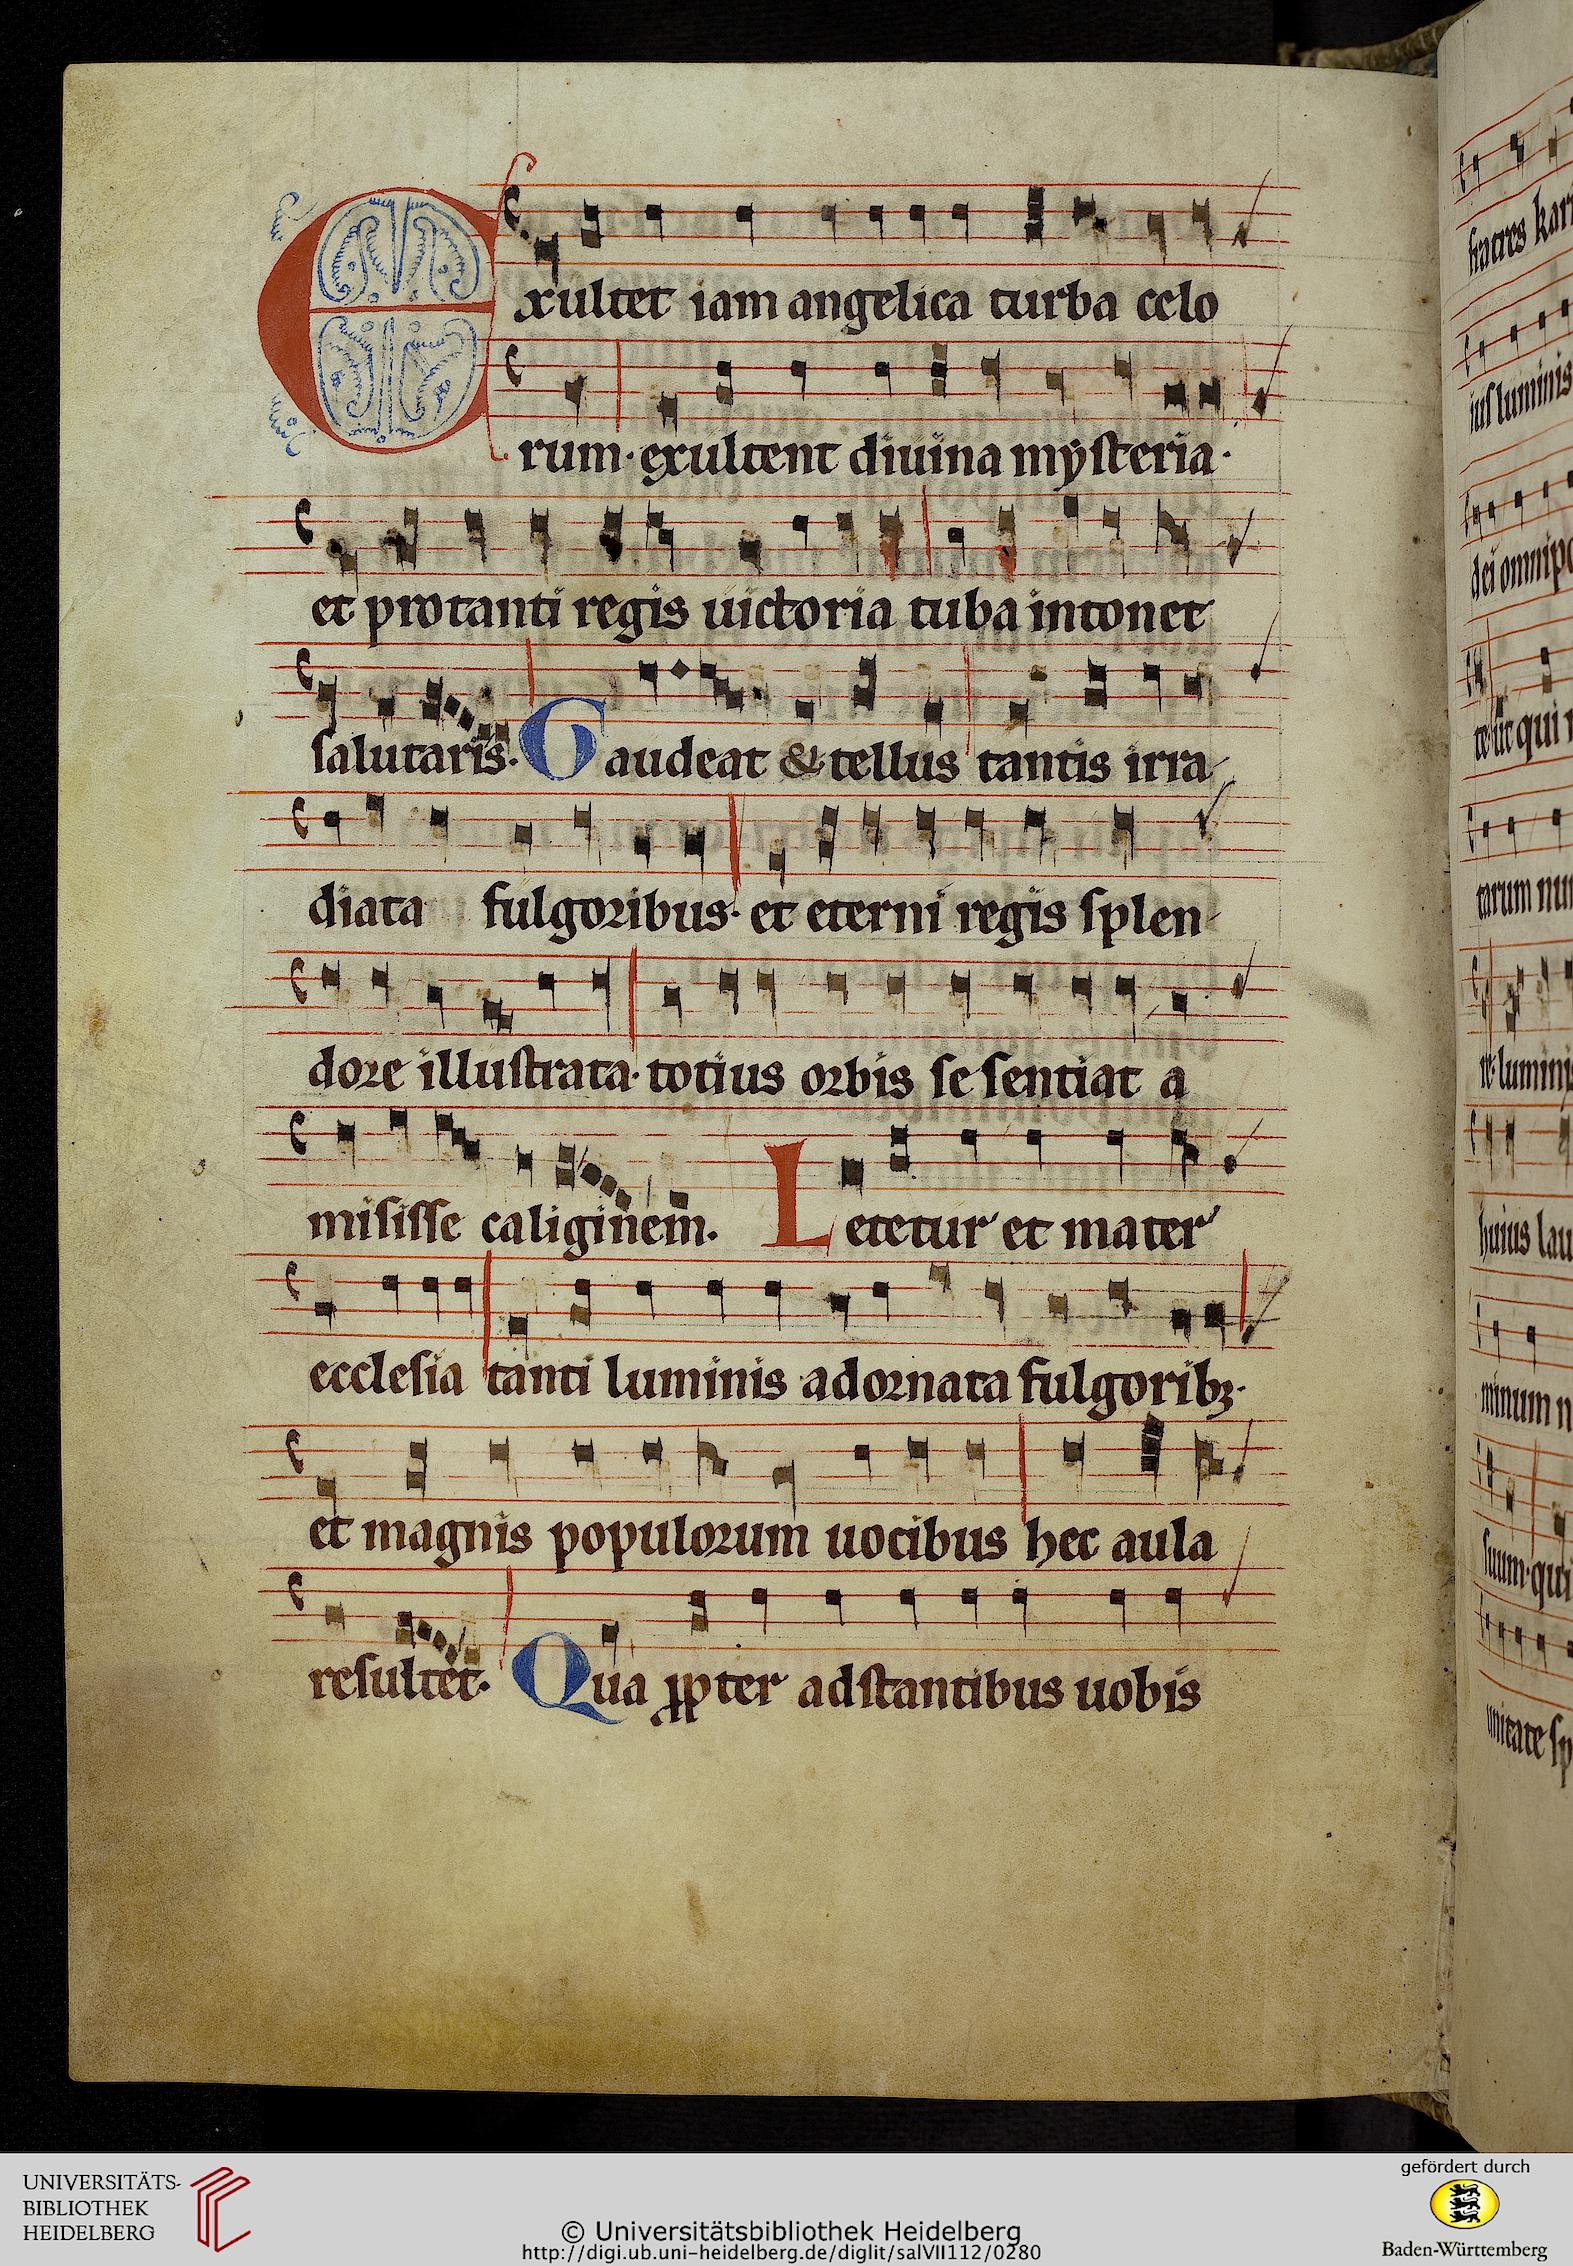 Exultet iam angelica turba celo
rum· exultent diuina mysteria·
et pro tanti regis uictoria tuba intonet
salutaris· Gaudeat & tellus tantis irra
diata fulgoribus· et eterni regis splen
dore illustrata· totius orbis se sentiat a
misisse caliginem. Letetur et mater
ecclesia tanti luminis adornata fulgoribꝫ·
et magnis populorum uocibus hec aula
resultet· Qua ꝓpter adstantibus uobis
fratres kari
ius luminis
dei omnipo
te ut qui
tarum nu
re· lumini
huius lau
minum n
suum· qui
unitate sp
UNIVERSITÄTS-
BIBLIOTHEK
HEIDELBERG
© Universitätsbibliothek Heidelberg
http://digi.ub.uni-heidelberg.de/diglit/salVII112/0280
gefördert durch
Baden-Württemberg